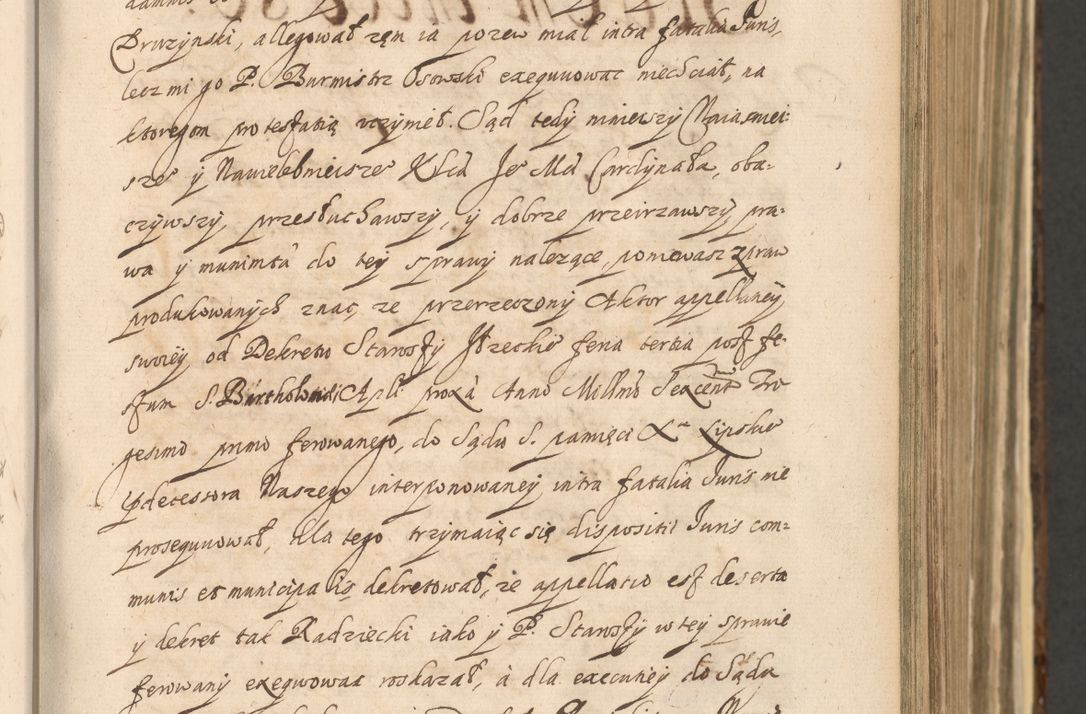 Druzynski, allegował zem ia pozew miał intra fatalia Juris,
lecz mi go P. Burmistrz Osowski exequuowac niechciał, na
ktoregom protestatią uczynieł. Sąd tedy ninieiszy Naiasniei-
szeº y Nawielebnieiszeº Xcia Jeº Mci Cardynała, oba-
czywszy, przesłuchawszy, y dobrze przeirzawszy pra-
wa y munimta do tey sprawy nalezące, poniewasz z praw
produkowanych znac, ze przerzeczony Aktor appellaney
swoiey od Dekretu Starosty Jłzeckieº feria tertia post fe-
stum S. Bartholomaei Apli proxa Anno Millmo Sexcent Tri-
gesimo primo ferowanego, do Sądu S. pamięci Xª Lipskieº
Pdecessora Naszego interponowaney intra fatalia Juris nie
prosequuował, dla tego trzymaiąc się dispositii Juris com-
munis et municipalis dekretował, ze appellatio est deserta
y dekret tak Radziecki iako y P. Starosty w tey sprawie
ferowany exequowac roskazał, a dla execuney do Sądu